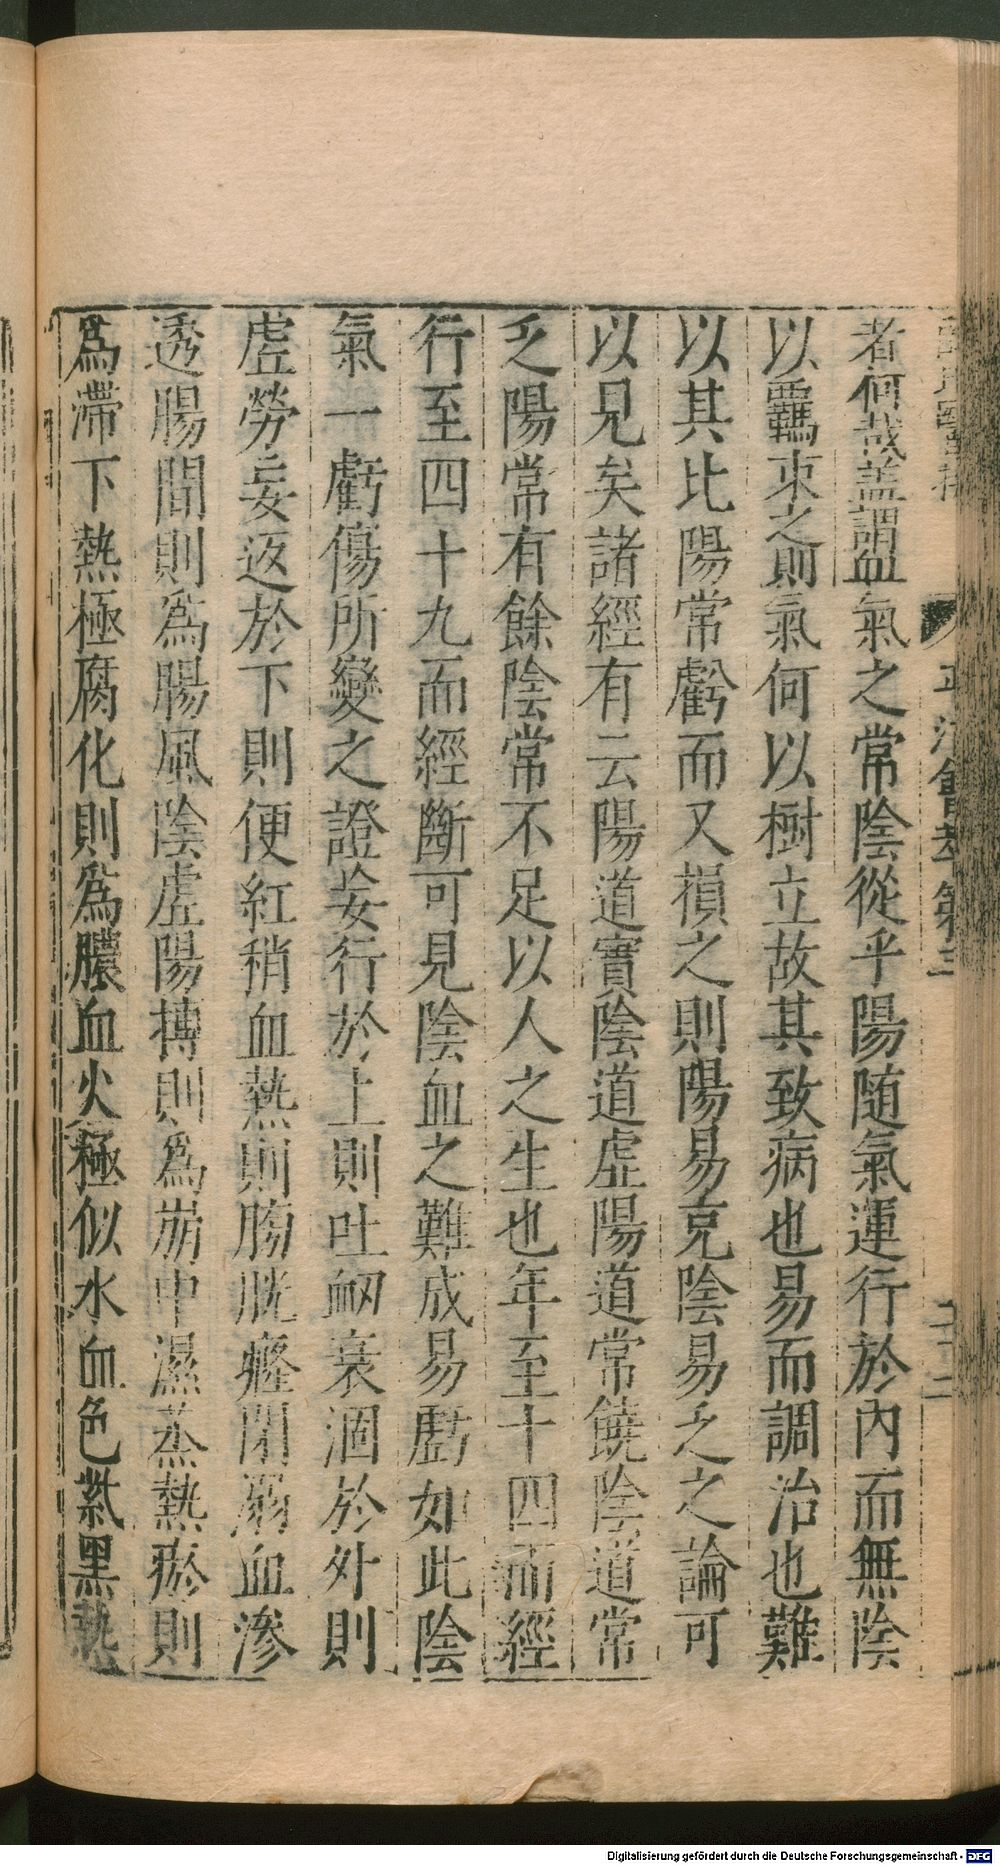 者何哉盖謂血氣之常陰從乎陽随氣運行於內而無陰
以羈束之則氣何以樹立故其致病也易而調治也難
以其比陽常虧而又損之則陽易亢陰易乏之論可
以見矣諸經有云陽道實陰道虛陽道常饒陰道常
乏陽常有餘陰常不足以人之生也年至十四而經
行至四十九而經斷可見陰血之難成易虧如此陰
氣一虧傷所變之證妄行於上則吐衂衰涸於外則
虛勞妄返於下則便紅稍血熱則膀胱癃閉溺血滲
透腸間則爲腸風陰虛陽搏則爲崩中濕蒸熱瘀則
爲滯下熱極腐化則爲膿血火極似水血色紫黑熱
Digitalisierung gefördert durch die Deutsche Forschungsgemeinschaft - DFG